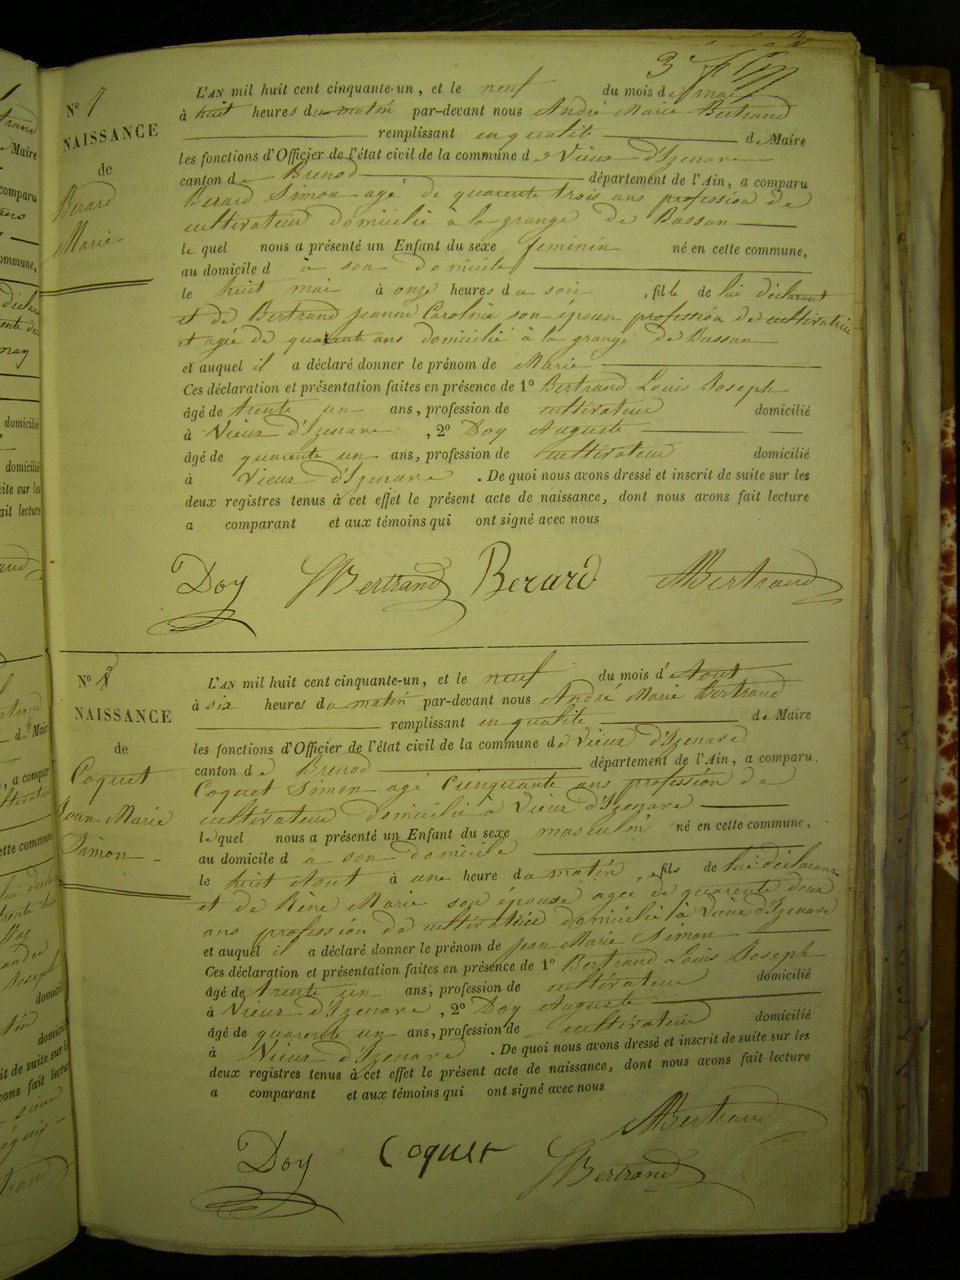 3
N° 7
NAISSANCE
de
Berard
Marie
L'AN mil huit cent cinquante-un, et le neuf du mois de mai
à huit heures du matin par-devant nous André Marie Bertrand
remplissant en qualité de Maire
les fonctions d'Officier de l'état civil de la commune de Vieux d'Izenave
canton de Brenod département de l'Ain, a comparu
Berard Simon agé de quarente trois ans profession de
cultivateur domicilié à la grange de Bassan
le quel nous a présenté un Enfant du sexe feminin né en cette commune,
au domicile d à son domicile
le huit mai à onze heures du soir, fille de lui déclarant
et de Bertrand Jeanne Caroline son épouse profession de cultivatrice
et agée de quarante ans domicilié à la grange de Bussan
et auquel il a déclaré donner le prénom de Marie
Ces déclaration et présentation faites en présence de 1° Bertrand Louis Joseph
âgé de trente un ans, profession de cultivateur domicilié
à Vieux d'Izenave, 2° Doy Auguste
âgé de quarente un ans, profession de cultivateur domicilié
à Vieux d'Izenave. De quoi nous avons dressé et inscrit de suite sur les
deux registres tenus à cet effet le présent acte de naissance, dont nous avons fait lecture
a comparant et aux témoins qui ont signé avec nous
Doy Bertrand Berard Bertrand
N° 8
NAISSANCE
de
Coquet
Jean Marie
Simon
L'AN mil huit cent cinquante-un, et le neuf du mois d'Aout
à six heures du matin par-devant nous André Marie Bertrand
remplissant en qualité de Maire
les fonctions d'Officier de l'état civil de la commune de Vieux d'Izenave
canton de Brenod département de l'Ain, a comparu.
Coquet Simon agé cinquante ans profession de
cultivateur domicilié à Vieux d'Izenave
le quel nous a présenté un Enfant du sexe masculin né en cette commune,
au domicile d à son domicile
le huit Aout à une heure du matin, fils de lui déclarant
et de Rene Marie son épouse agee de quarente deux
ans profession de cultivatrice domicilié à Vieux d'Izenave
et auquel il a déclaré donner le prénom de Jean Marie Simon
Ces déclaration et présentation faites en présence de 1° Bertrand Louis Joseph
âgé de trente un ans, profession de cultivateur domicilié
à Vieux d'Izenave, 2° Doy Auguste
âgé de quarente un ans, profession de cultivateur domicilié
à Vieux d'Izenave. De quoi nous avons dressé et inscrit de suite sur les
deux registres tenus à cet effet le présent acte de naissance, dont nous avons fait lecture
a comparant et aux témoins qui ont signé avec nous
Bertrand
Doy Coquet Bertrand